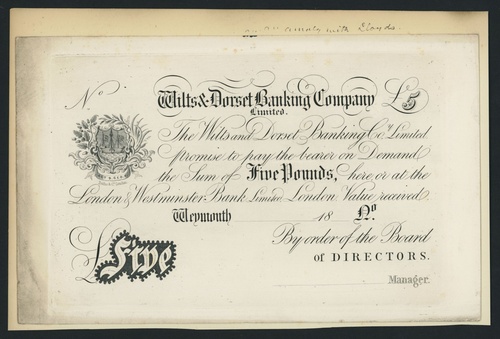 with Lloyds.
No. Wilts & Dorset Banking Company £5
Limited.
The Wilts and Dorset Banking Coy. Limited
promise to pay the bearer on Demand
the Sum of Five Pounds, here or at the
London & Westminster Bank Limited London Value received
Weymouth 18 No.
By order of the Board
of DIRECTORS.
£Five
Manager.